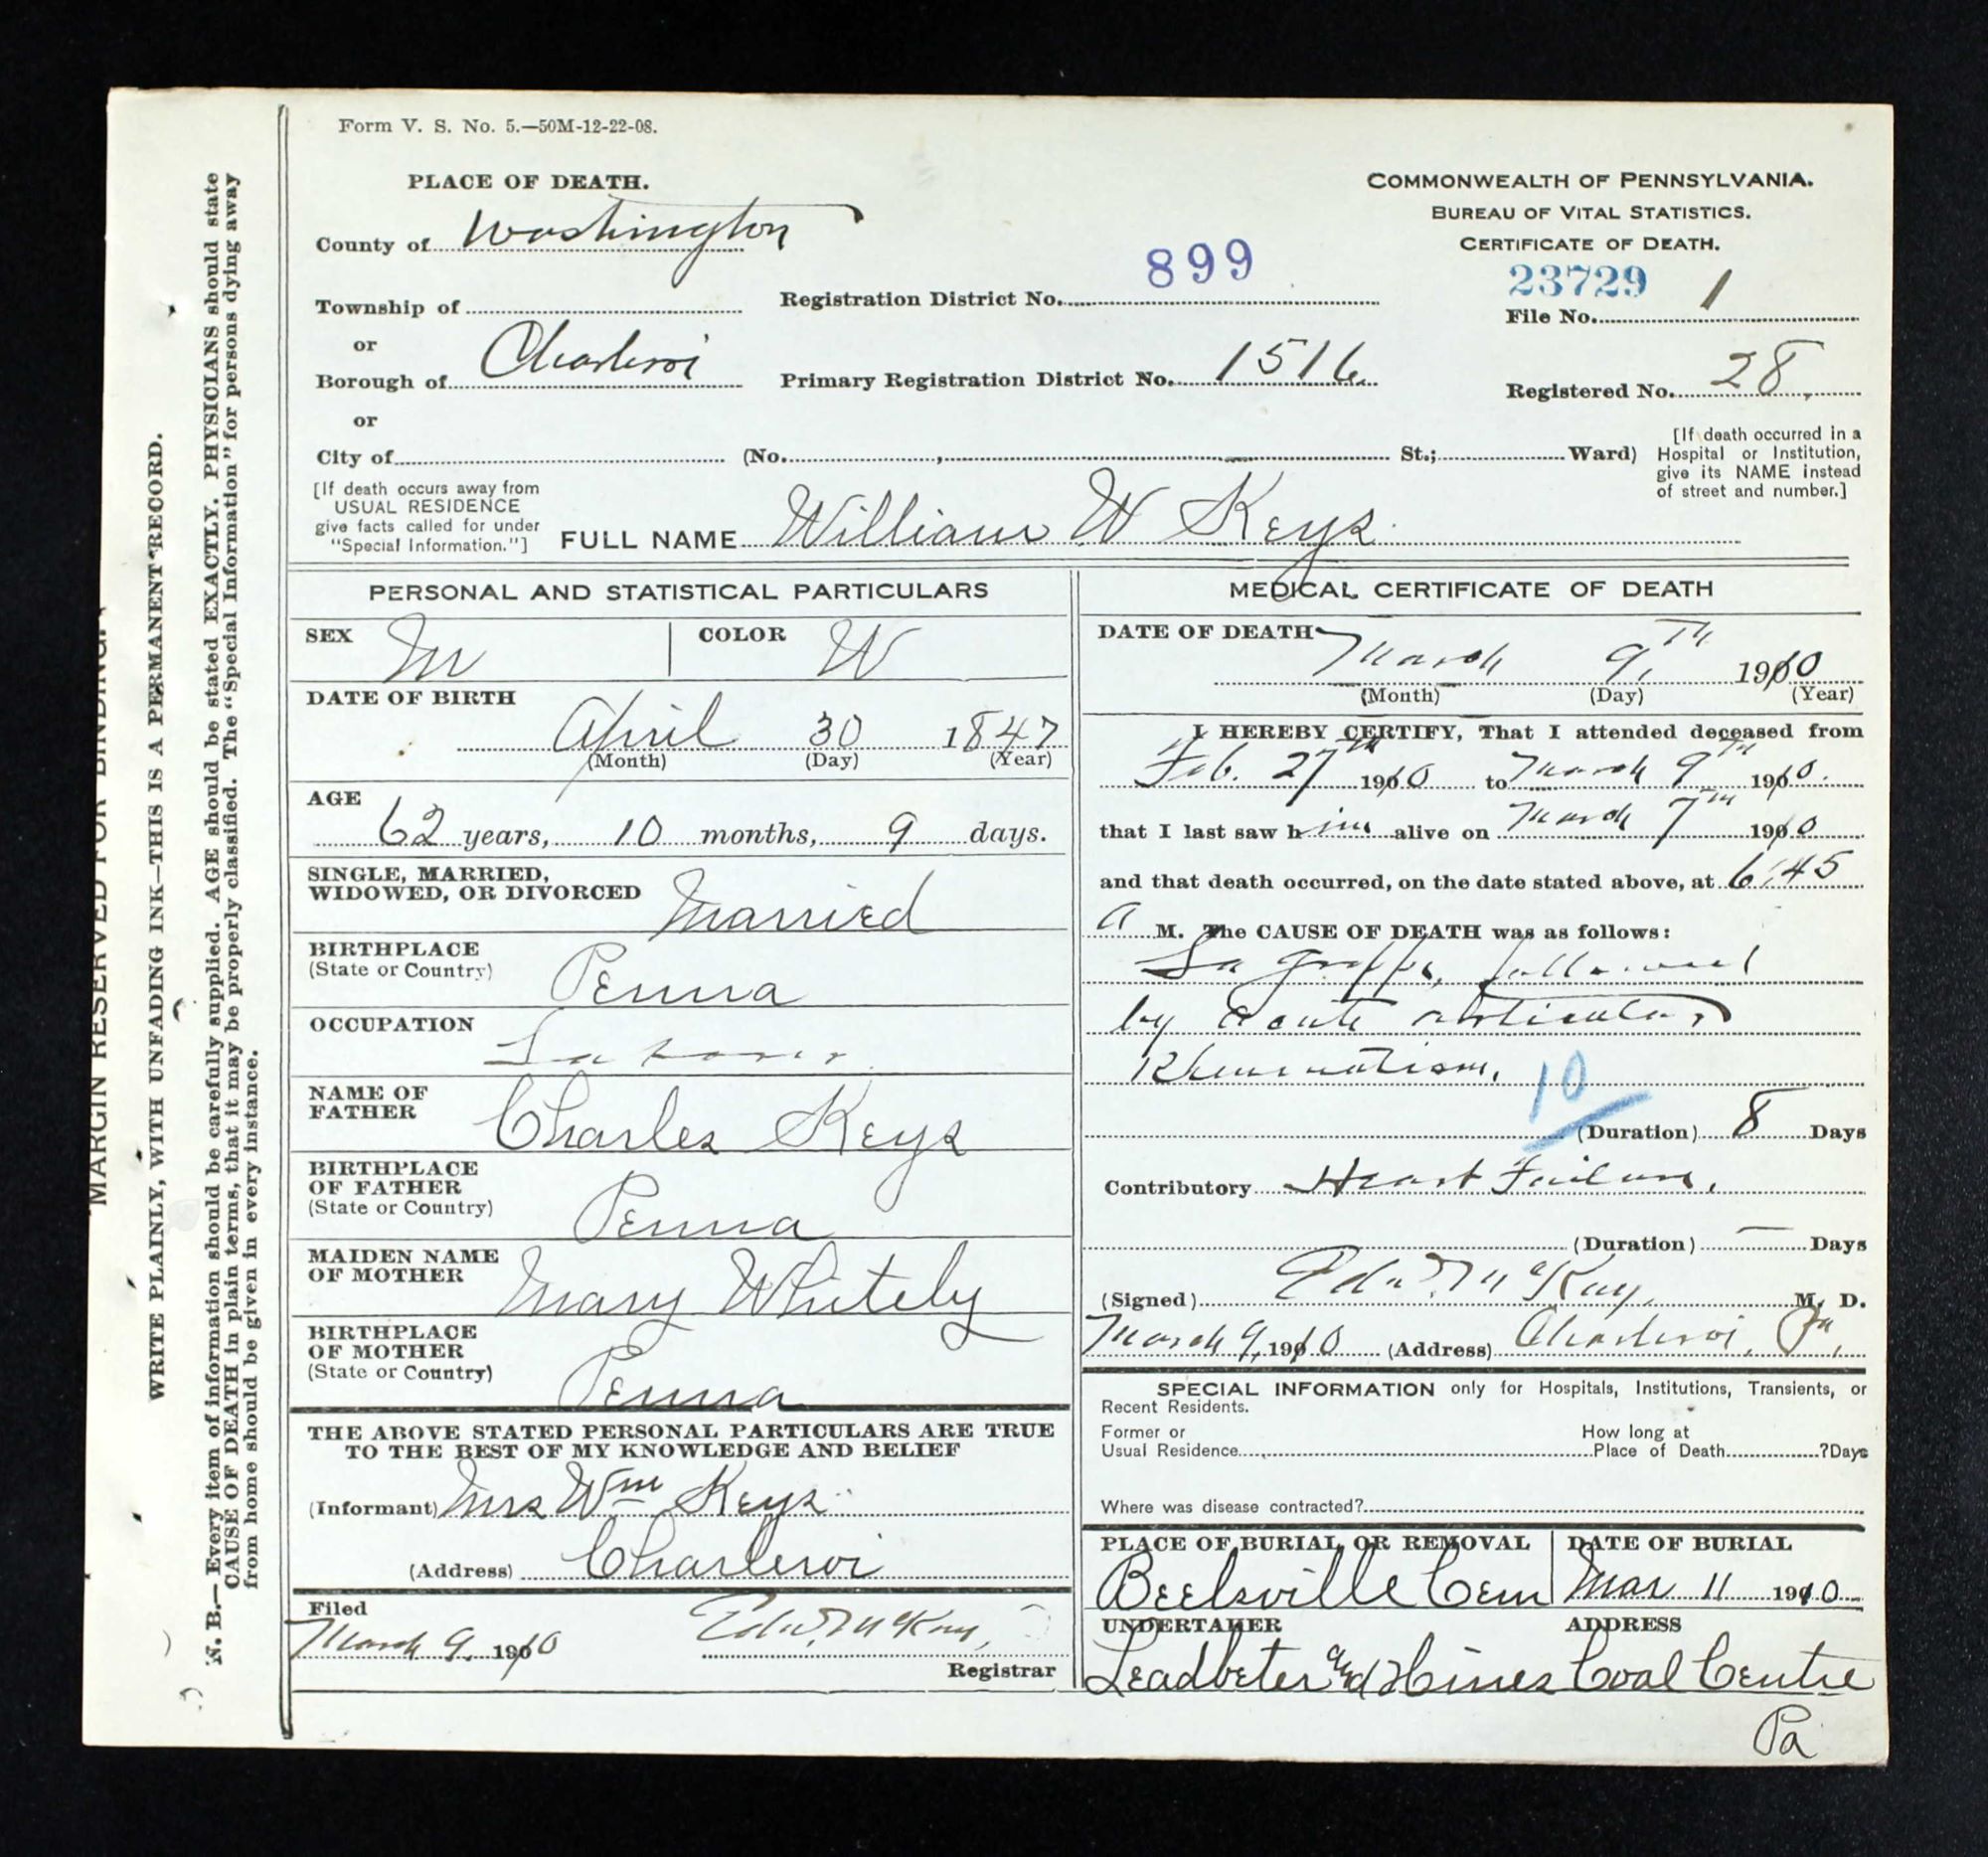 Form V. S. No. 5.—50M-12-22-08.
PLACE OF DEATH.
County of Washington
Township of
or
Borough of Charleroi
or
City of
Registration District No. 899
Primary Registration District No. 1516
COMMONWEALTH OF PENNSYLVANIA.
BUREAU OF VITAL STATISTICS.
CERTIFICATE OF DEATH.
23729 1
File No.
Registered No. 28
(No. , St.; Ward)
[If death occurred in a
Hospital or Institution,
give its NAME instead
of street and number.]
[If death occurs away from
USUAL RESIDENCE
give facts called for under
"Special Information."]
FULL NAME William W Keys
PERSONAL AND STATISTICAL PARTICULARS
SEX M COLOR W
DATE OF BIRTH
April 30 1847
(Month) (Day) (Year)
AGE
62 years, 10 months, 9 days.
SINGLE, MARRIED,
WIDOWED, OR DIVORCED Married
BIRTHPLACE
(State or Country) Penna
OCCUPATION
Laborer
NAME OF
FATHER Charles Keys
BIRTHPLACE
OF FATHER
(State or Country) Penna
MAIDEN NAME
OF MOTHER Mary Whitely
BIRTHPLACE
OF MOTHER
(State or Country) Penna
THE ABOVE STATED PERSONAL PARTICULARS ARE TRUE
TO THE BEST OF MY KNOWLEDGE AND BELIEF
(Informant) Mrs Wm Keys
(Address) Charleroi
Filed
March 9, 1910 Edw. McKay,
Registrar
MEDICAL CERTIFICATE OF DEATH
DATE OF DEATH
March 9,th 1910
(Month) (Day) (Year)
I HEREBY CERTIFY, That I attended deceased from
Feb. 27th 1910 to March 9th 1910.
that I last saw him alive on March 7th 1910
and that death occurred, on the date stated above, at 6:45
A M. The CAUSE OF DEATH was as follows:
La Grippe, followed
by acute articular
Rheumatism.
10
(Duration) 8 Days
Contributory Heart Failure.
(Duration) — Days
(Signed) Edw. McKay, M. D.
March 9, 1910 (Address) Charleroi, Pa,
SPECIAL INFORMATION only for Hospitals, Institutions, Transients, or
Recent Residents.
Former or
Usual Residence
How long at
Place of Death ?Days
Where was disease contracted?
PLACE OF BURIAL OR REMOVAL
Beelsville Cem
DATE OF BURIAL
Mar 11 1910
UNDERTAKER
Leadbeter and Hines
ADDRESS
Coal Centre
Pa
MARGIN RESERVED FOR BINDING.
WRITE PLAINLY, WITH UNFADING INK—THIS IS A PERMANENT RECORD.
N. B.—Every item of information should be carefully supplied. AGE should be stated EXACTLY. PHYSICIANS should state
CAUSE OF DEATH in plain terms, that it may be properly classified. The "Special Information" for persons dying away
from home should be given in every instance.